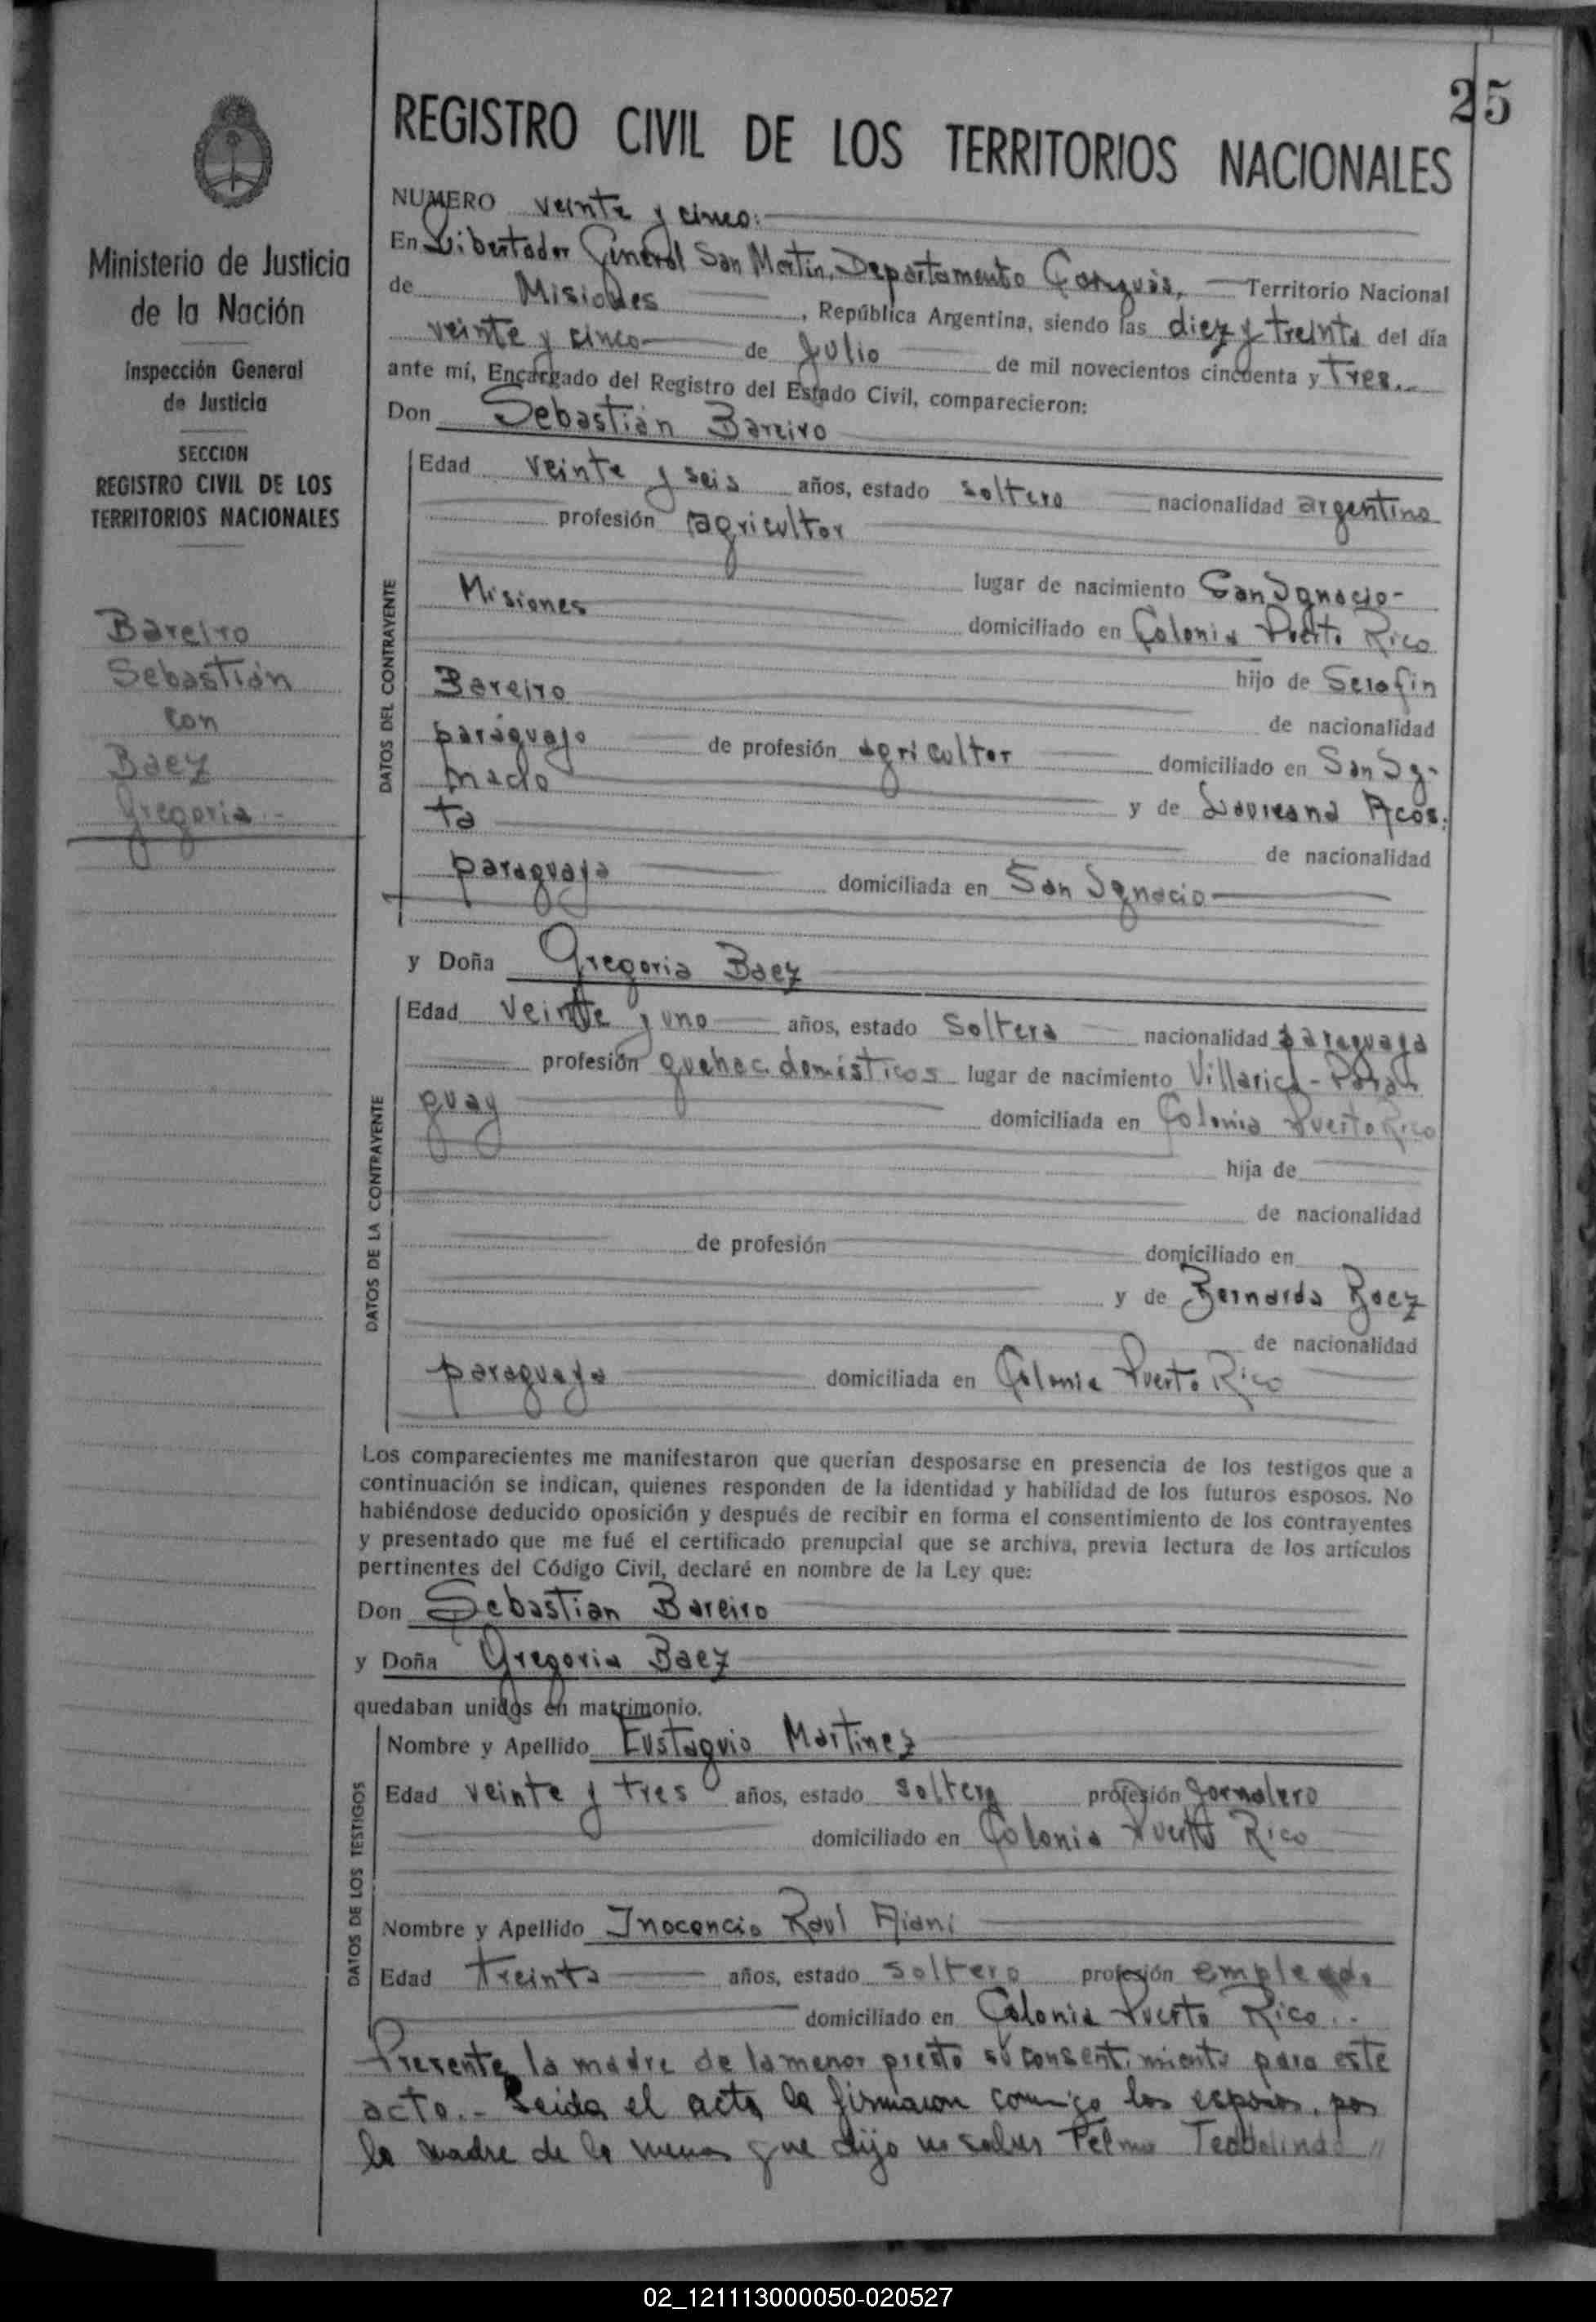 25
REGISTRO CIVIL DE LOS TERRITORIOS NACIONALES
Ministerio de Justicia
de la Nación
Inspección General
de Justicia
SECCION
REGISTRO CIVIL DE LOS
TERRITORIOS NACIONALES
Bareiro
Sebastián
con
Baez
Gregoria.-
NUMERO veinte y cinco.
En Libertador General San Martin, Departamento Cainguás, Territorio Nacional
de Misiones, República Argentina, siendo las diez y treinta del día
veinte y cinco de Julio de mil novecientos cincuenta y tres.
ante mí, Encargado del Registro del Estado Civil, comparecieron:
Don Sebastián Bareiro
DATOS DEL CONTRAYENTE
Edad veinte y seis años, estado soltero nacionalidad argentina
profesión agricultor
lugar de nacimiento San Ignacio-
Misiones domiciliado en Colonia Puerto Rico
hijo de Serafin
Bareiro de nacionalidad
paraguayo de profesión agricultor domiciliado en San Ig-
nacio y de Laureana Acos-
ta de nacionalidad
paraguaya domiciliada en San Ignacio
y Doña Gregoria Baez
DATOS DE LA CONTRAYENTE
Edad veinte y uno años, estado soltera nacionalidad paraguaya
profesión quehac. domésticos lugar de nacimiento Villarica-Para
guay domiciliada en Colonia Puerto Rico
hija de
de nacionalidad
de profesión domiciliado en
y de Bernarda Baez
de nacionalidad
paraguaya domiciliada en Colonia Puerto Rico
Los comparecientes me manifestaron que querían desposarse en presencia de los testigos que a
continuación se indican, quienes responden de la identidad y habilidad de los futuros esposos. No
habiéndose deducido oposición y después de recibir en forma el consentimiento de los contrayentes
y presentado que me fué el certificado prenupcial que se archiva, previa lectura de los artículos
pertinentes del Código Civil, declaré en nombre de la Ley que:
Don Sebastian Bareiro
y Doña Gregoria Baez
quedaban unidos en matrimonio.
DATOS DE LOS TESTIGOS
Nombre y Apellido Eustaquio Martinez
Edad veinte y tres años, estado soltero profesión Jornalero
domiciliado en Colonia Puerto Rico
Nombre y Apellido Inocencio Raul
Edad treinta años, estado soltero profesión empleado
domiciliado en Colonia Puerto Rico..
Presente la madre de la menor prestó su consentimiento para este
acto.- Leida el acta la firmaron comigo los esposos, por
la madre de la menor que dijo no saber Telmo Teodelindo
02_121113000050-020527